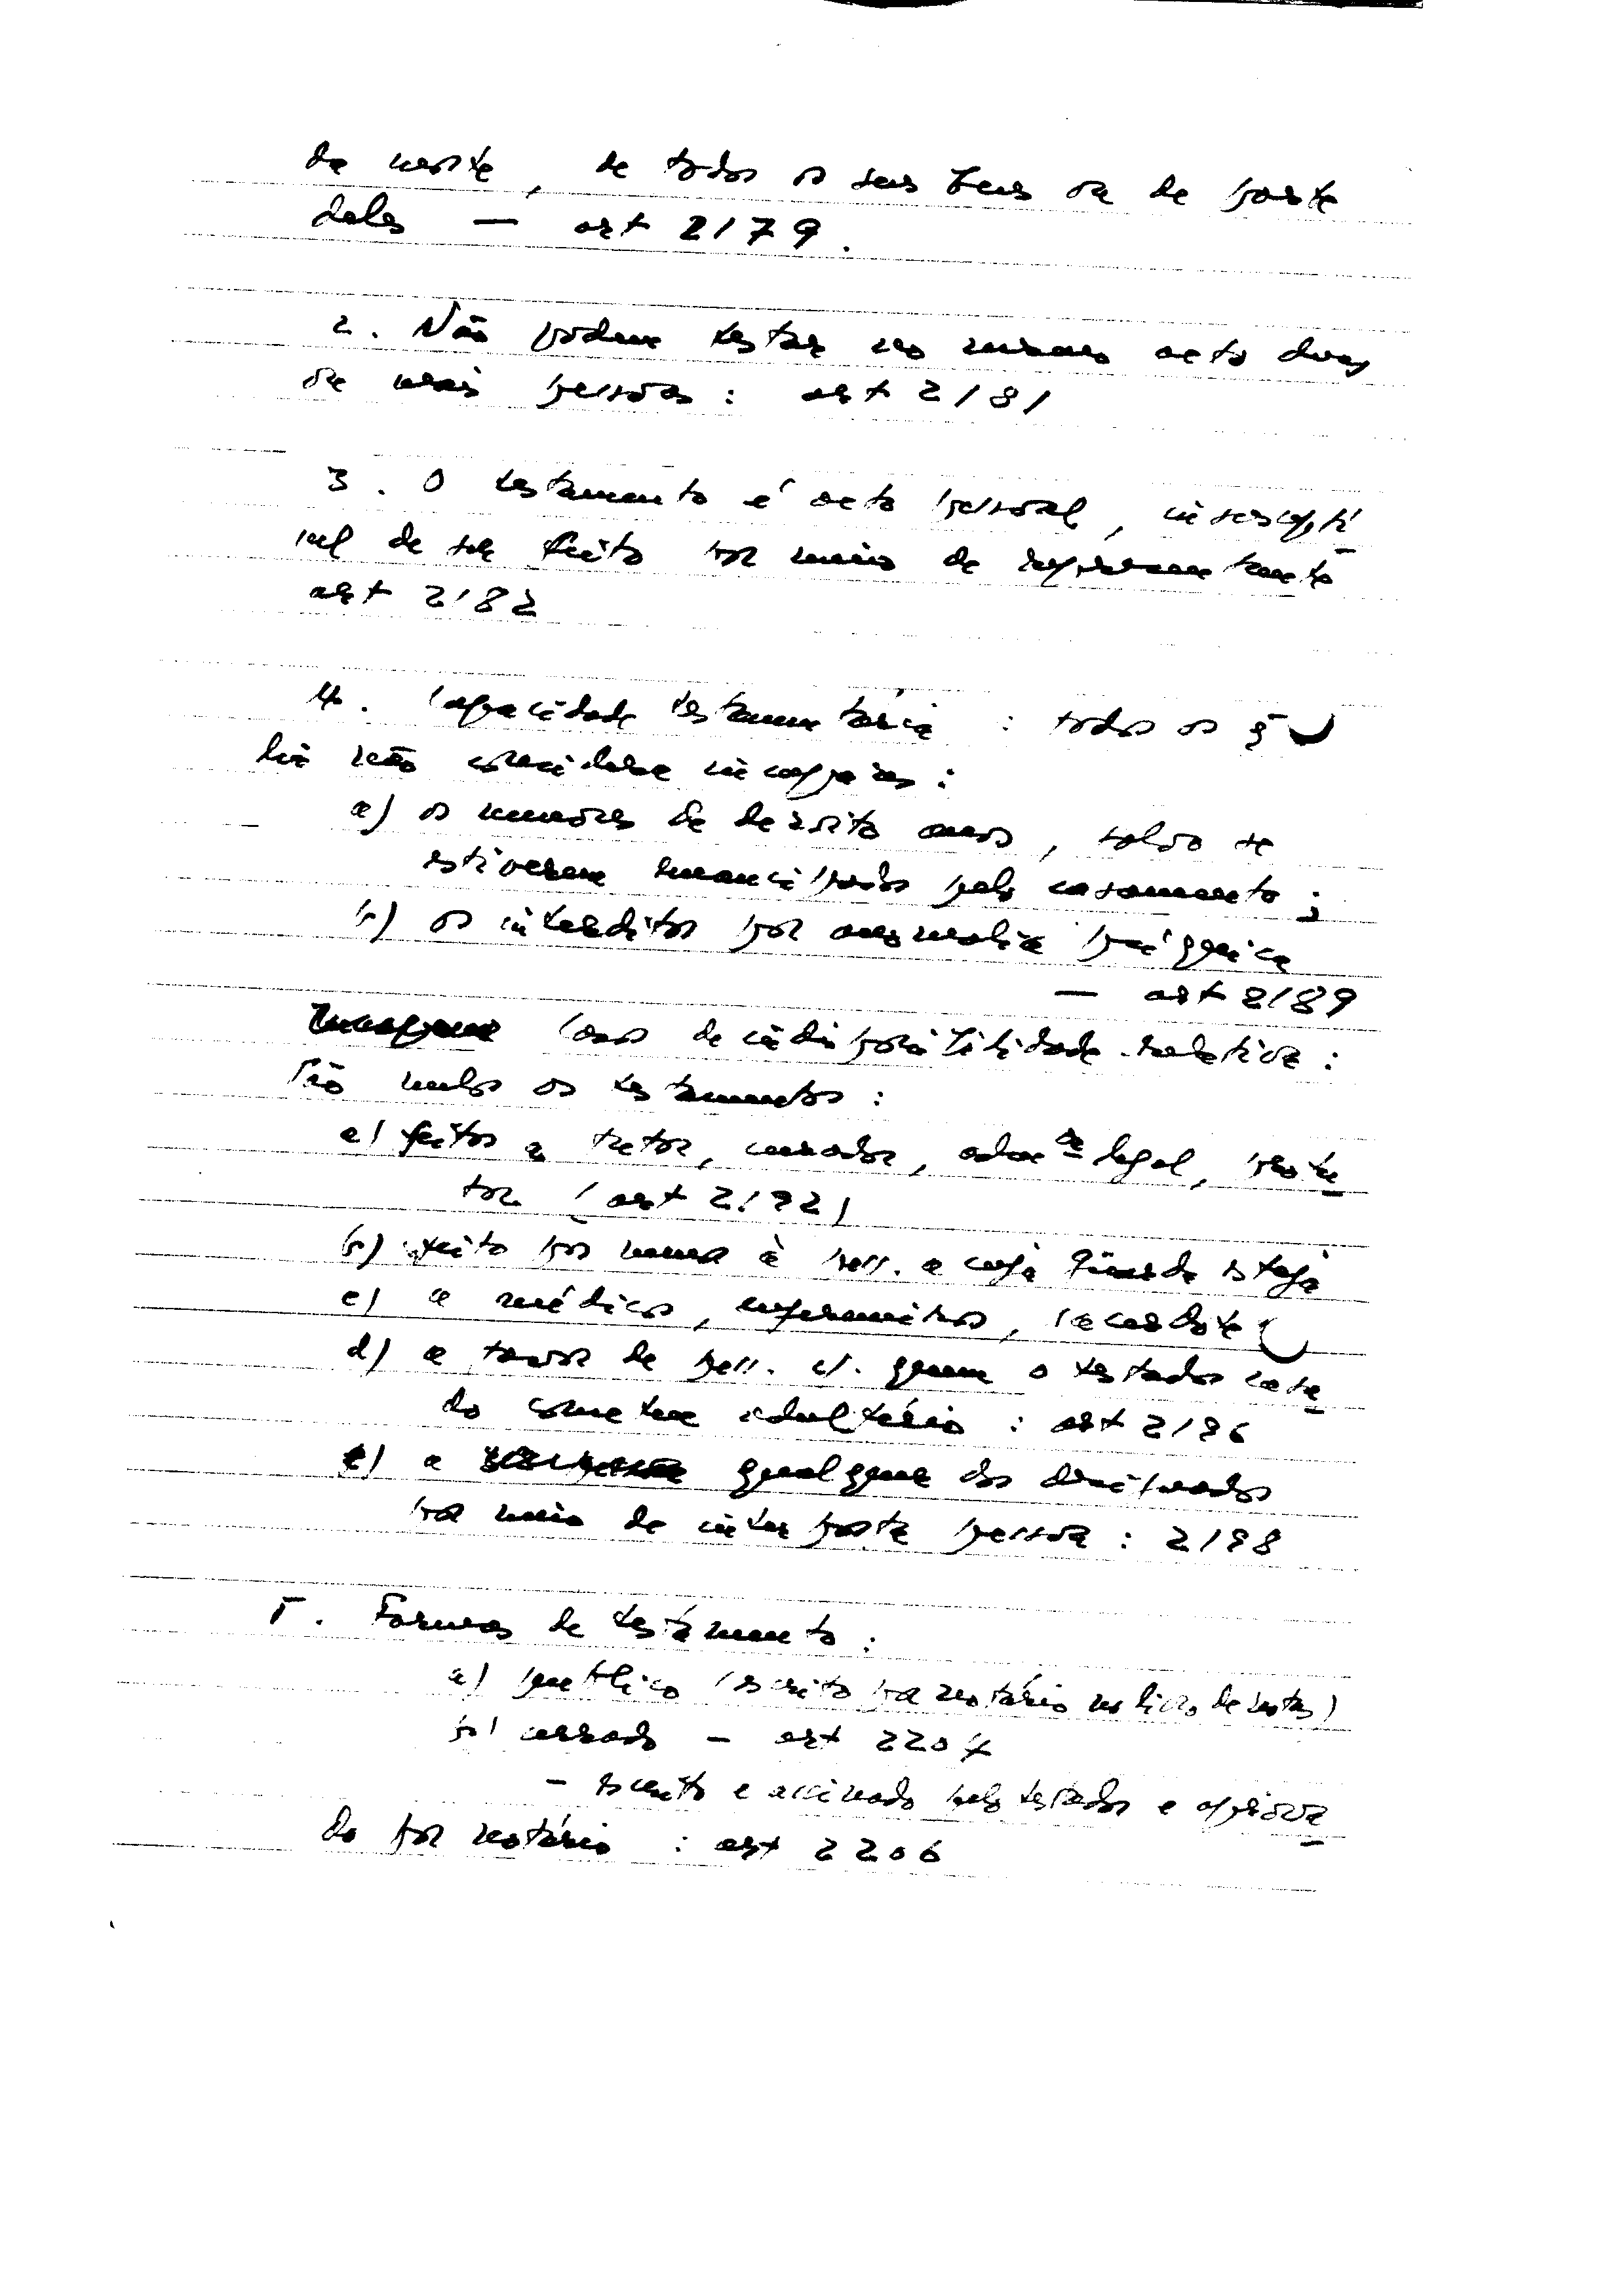 da morte, de todos os seus bens ou de parte
deles — art 2179.
2. Não podem testar no mesmo acto duas
ou mais pessoas: art 2181
3. O testamento é acto pessoal, insuscepti
vel de ser feito por meio de representante
art 2182
4. Capacidade testamentária: todos os q
lei não considere incapazes:
a) os menores de dezoito anos, salvo se
estiverem emancipados pelo casamento;
b) os interditos por anomalia psíquica
— art 2189
Casos de indisponibilidade relativa:
São nulos os testamentos:
a) feitos a tutor, curador, adm legal, protu
tor (art 2192)
b) feito por menor à pess. a cujo esteja
c) a médicos, enfermeiros, sacerdote
d) a favor de pess. c/. quem o testador casa
do cometeu adultério: art 2196
e) a qualquer dos designados
por meio de interposta pessoa: 2198
5. Formas de testamento:
a) público (escrito por notário no livro de notas)
b) cerrado – art 2204
– escrito e assinado pelo testador e aprova
do por notário: art 2206